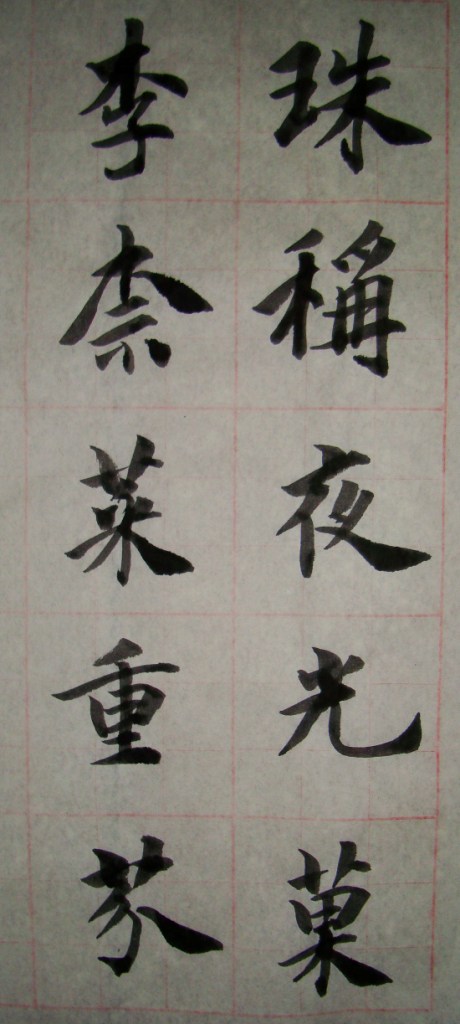 珠稱夜光菓
李柰菜重芥